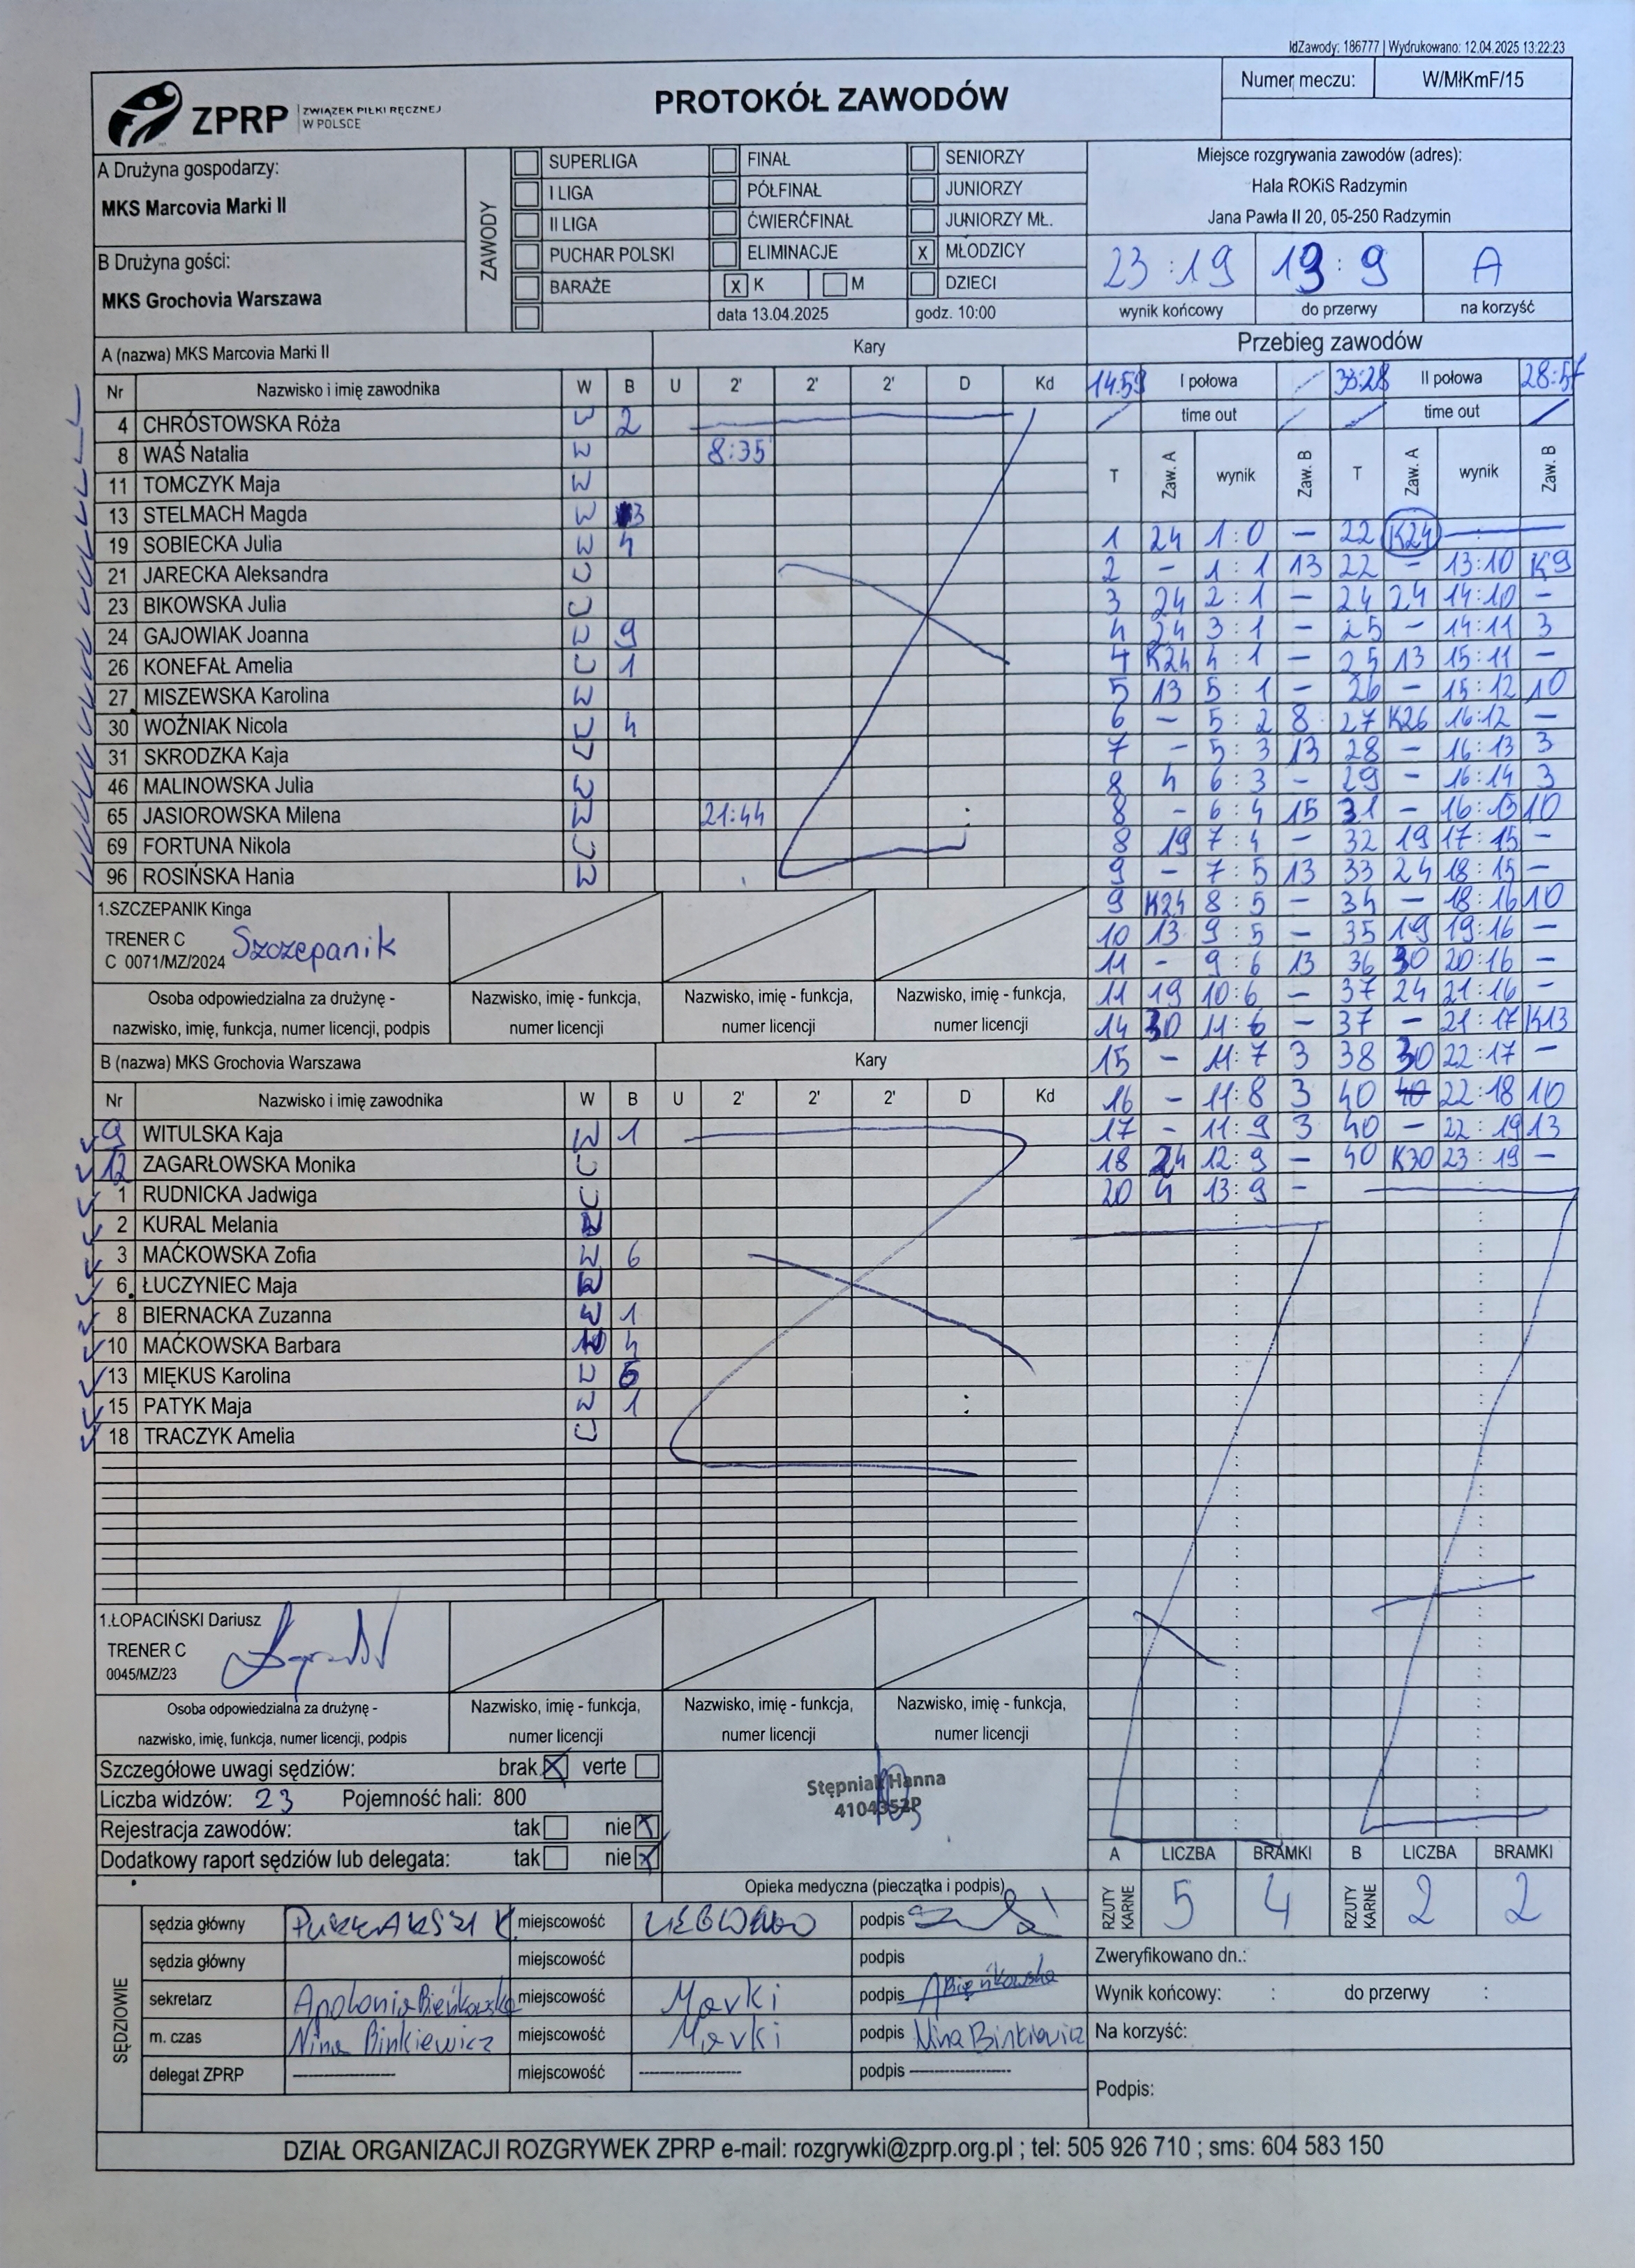 IdZawody: 186777 | Wydrukowano: 12.04.2025 13:22:23
ZPRP ZWIĄZEK PIŁKI RĘCZNEJ W POLSCE
PROTOKÓŁ ZAWODÓW
Numer meczu: W/MłKmF/15
A Drużyna gospodarzy:
MKS Marcovia Marki II
B Drużyna gości:
MKS Grochovia Warszawa
ZAWODY
SUPERLIGA FINAŁ SENIORZY
I LIGA PÓŁFINAŁ JUNIORZY
II LIGA ĆWIERĆFINAŁ JUNIORZY MŁ.
PUCHAR POLSKI ELIMINACJE X MŁODZICY
BARAŻE X K M DZIECI
data 13.04.2025 godz. 10:00
Miejsce rozgrywania zawodów (adres):
Hala ROKiS Radzymin
Jana Pawła II 20, 05-250 Radzymin
23:19 13:9 A
wynik końcowy do przerwy na korzyść
A (nazwa) MKS Marcovia Marki II Kary
Nr Nazwisko i imię zawodnika W B U 2' 2' 2' D Kd
4 CHRÓSTOWSKA Róża W 2
8 WAŚ Natalia W 8:35
11 TOMCZYK Maja W
13 STELMACH Magda W 3
19 SOBIECKA Julia W 4
21 JARECKA Aleksandra W
23 BIKOWSKA Julia W
24 GAJOWIAK Joanna W 9
26 KONEFAŁ Amelia W 1
27 MISZEWSKA Karolina W
30 WOŹNIAK Nicola W 4
31 SKRODZKA Kaja W
46 MALINOWSKA Julia W
65 JASIOROWSKA Milena W 21:44 :
69 FORTUNA Nikola W
96 ROSIŃSKA Hania W
1.SZCZEPANIK Kinga
TRENER C
C 0071/MZ/2024 Szczepanik
Osoba odpowiedzialna za drużynę - nazwisko, imię, funkcja, numer licencji, podpis
Nazwisko, imię - funkcja, numer licencji
Nazwisko, imię - funkcja, numer licencji
Nazwisko, imię - funkcja, numer licencji
B (nazwa) MKS Grochovia Warszawa Kary
Nr Nazwisko i imię zawodnika W B U 2' 2' 2' D Kd
9 WITULSKA Kaja W 1
12 ZAGARŁOWSKA Monika W
1 RUDNICKA Jadwiga W
2 KURAL Melania W
3 MAĆKOWSKA Zofia W 6
6 ŁUCZYNIEC Maja W
8 BIERNACKA Zuzanna W 1
10 MAĆKOWSKA Barbara W 4
13 MIĘKUS Karolina W 6
15 PATYK Maja W 1 :
18 TRACZYK Amelia W
1.ŁOPACIŃSKI Dariusz
TRENER C
0045/MZ/23
Osoba odpowiedzialna za drużynę - nazwisko, imię, funkcja, numer licencji, podpis
Nazwisko, imię - funkcja, numer licencji
Nazwisko, imię - funkcja, numer licencji
Nazwisko, imię - funkcja, numer licencji
Przebieg zawodów
14:59 I połowa 33:28 II połowa
time out time out
T Zaw. A wynik Zaw. B T Zaw. A wynik Zaw. B
1 24 1:0 – 22 K24
2 – 1:1 13 22 – 13:10 K9
3 24 2:1 – 24 24 14:10 –
4 24 3:1 – 25 – 14:11 3
4 K24 4:1 – 25 13 15:11 –
5 13 5:1 – 26 – 15:12 10
6 – 5:2 8 27 K26 16:12 –
7 – 5:3 13 28 – 16:13 3
8 4 6:3 – 29 – 16:14 3
8 – 6:4 15 31 – 16:15 10
8 19 7:4 – 32 19 17:15 –
9 – 7:5 13 33 24 18:15 –
9 K24 8:5 – 34 – 18:16 10
10 13 9:5 – 35 19 19:16 –
11 – 9:6 13 36 30 20:16 –
11 19 10:6 – 37 24 21:16 –
14 30 11:6 – 37 – 21:17 K13
15 – 11:7 3 38 30 22:17 –
16 – 11:8 3 40 40 22:18 10
17 – 11:9 3 40 – 22:19 13
18 24 12:9 – 40 K30 23:19 –
20 4 13:9 –
Szczegółowe uwagi sędziów: brak X verte
Liczba widzów: 23 Pojemność hali: 800
Rejestracja zawodów: tak nie X
Dodatkowy raport sędziów lub delegata: tak nie X
Stępniak Hanna
4104352P
Opieka medyczna (pieczątka i podpis)
A LICZBA BRAMKI B LICZBA BRAMKI
RZUTY KARNE 5 4 RZUTY KARNE 2 2
SĘDZIOWIE
sędzia główny miejscowość podpis
sędzia główny miejscowość podpis
sekretarz Apolonia Bieńkowska miejscowość Marki podpis ABieńkowska
m. czas Nina Binkiewicz miejscowość Marki podpis Nina Binkiewicz
delegat ZPRP miejscowość podpis
Zweryfikowano dn.:
Wynik końcowy: : do przerwy :
Na korzyść:
Podpis:
DZIAŁ ORGANIZACJI ROZGRYWEK ZPRP e-mail: rozgrywki@zprp.org.pl ; tel: 505 926 710 ; sms: 604 583 150